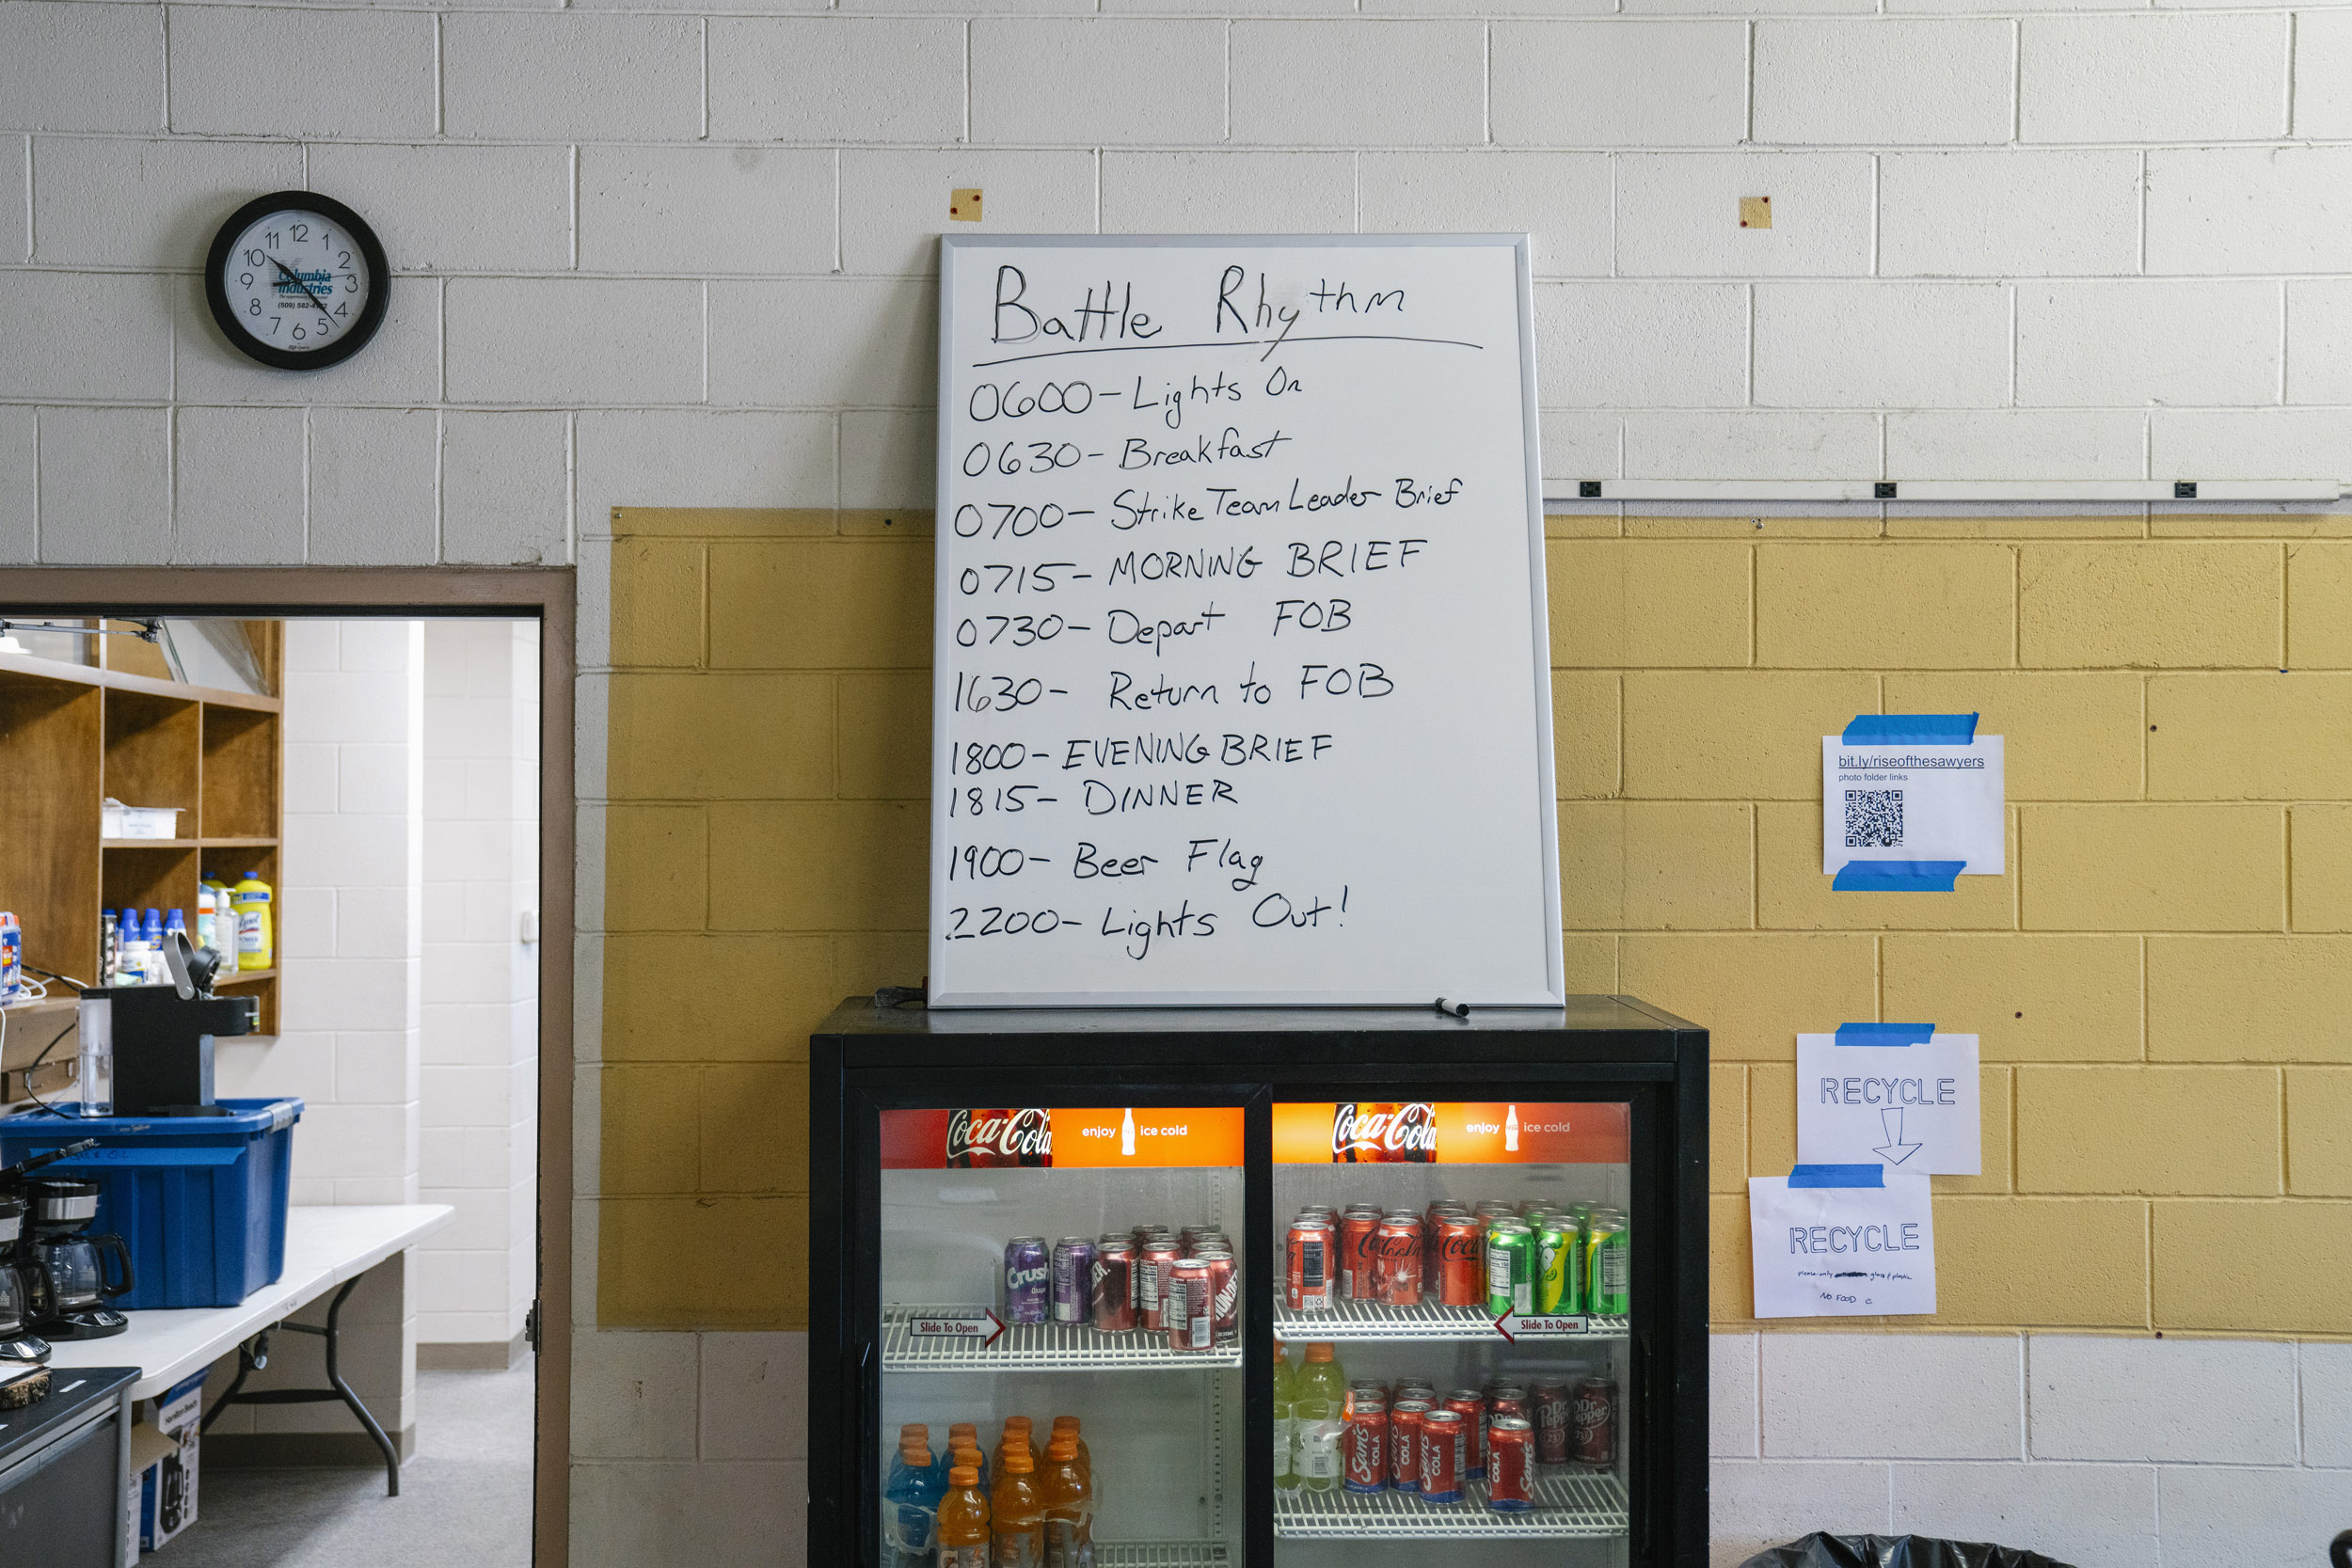 12
1
2
3
4
5
6
7
8
9
10
11
Columbia
Industries
Battle Rhythm
0600- Lights On
0630- Breakfast
0700- Strike Team Leader Brief
0715- MORNING BRIEF
0730- Depart FOB
1630- Return to FOB
1800- EVENING BRIEF
1815- DINNER
1900- Beer Flag
2200- Lights Out!
bit.ly/riseofthesawyers
photo folder links
RECYCLE
RECYCLE
please only glass & plastic
NO FOOD
Coca-Cola
enjoy ice cold
Coca-Cola
enjoy ice cold
Crush
Slide To Open
Slide To Open
Sam's
COLA
Sam's
COLA
Sam's
COLA
COLA
Sam's
Dr Pepper
Dr Pepper
Lysol